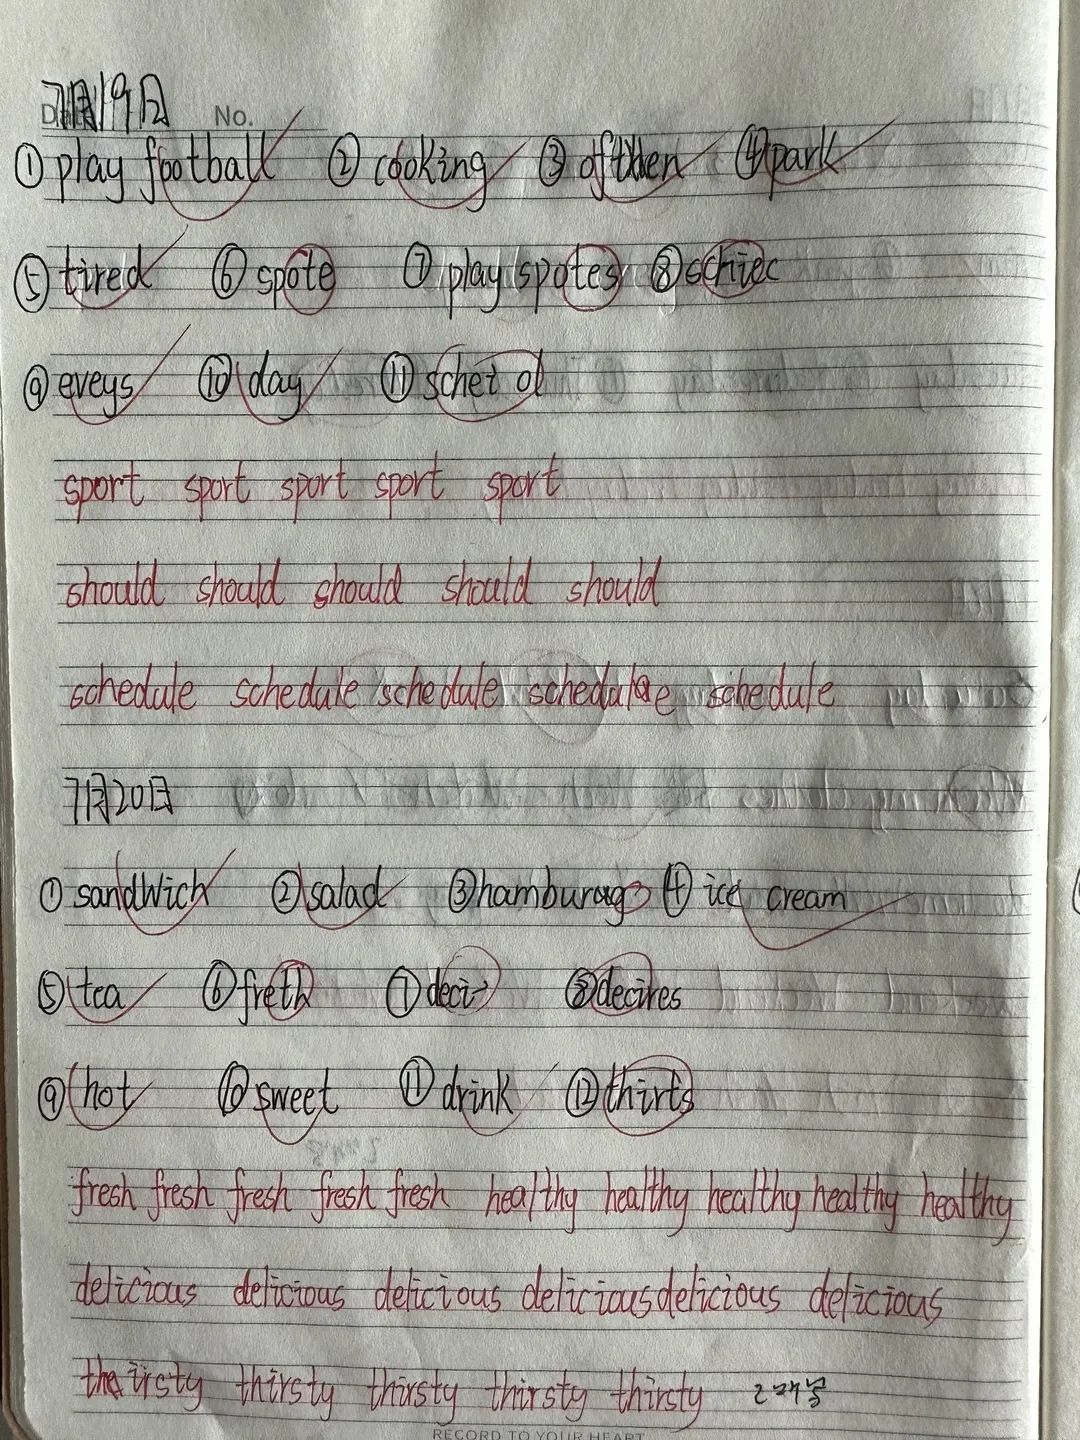 7月19日 No.
① play football ② cooking ③ ofthen ④ park
⑤ tired ⑥ spote ⑦ play spotes ⑧ schiec
⑨ eveys ⑩ day ⑪ schei ol
sport sport sport sport sport
should should should should should
schedule schedule schedule schedulae schedule
7月20日
① sandwich ② salad ③ hamburag ④ ice cream
⑤ tea ⑥ freth ⑦ deci ⑧ decires
⑨ hot ⑩ sweet ⑪ drink ⑫ thirts
fresh fresh fresh fresh fresh healthy healthy healthy healthy healthy
delicious delicious delicious delicious delicious delicious
thirsty thirsty thirsty thirsty thirsty
RECORD TO YOUR HEART